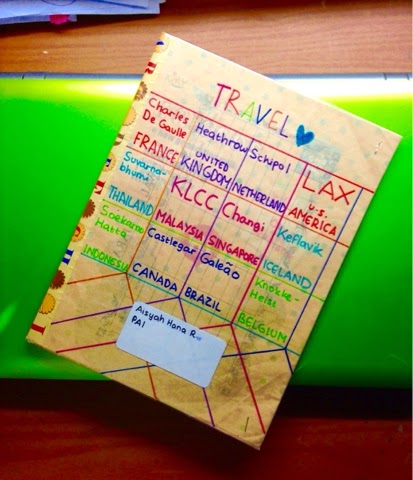 TRAVEL
Charles
De Gaulle
FRANCE
Heathrow
UNITED
KINGDOM
Schipol
NETHERLAND
LAX
U.S.
AMERICA
Suvarna-
bhumi
THAILAND
KLCC
MALAYSIA
Changi
SINGAPORE
Keflavik
ICELAND
Soekarno
Hatta
INDONESIA
Castlegar
CANADA
Galeão
BRAZIL
Knokke-
Heist
BELGIUM
Aisyah Hana R
PAI